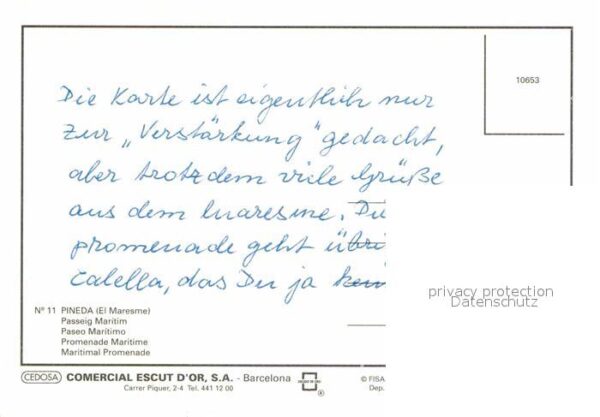 10653
Die Karte ist eigentlich nur
zur „Verstärkung" gedacht,
aber trotzdem viele Grüße
aus dem Maresme. Di
promenade geht übri
Calella, das Du ja
privacy protection
Datenschutz
Nº 11 PINEDA (El Maresme)
Passeig Marítim
Paseo Marítimo
Promenade Maritime
Maritimal Promenade
CEDOSA COMERCIAL ESCUT D'OR, S.A. - Barcelona
Carrer Piquer, 2-4 Tel. 441 12 00
© FISA
Dep.